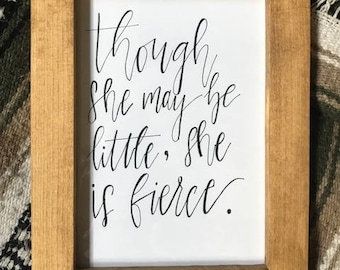 though
she may be
little, she
is fierce.